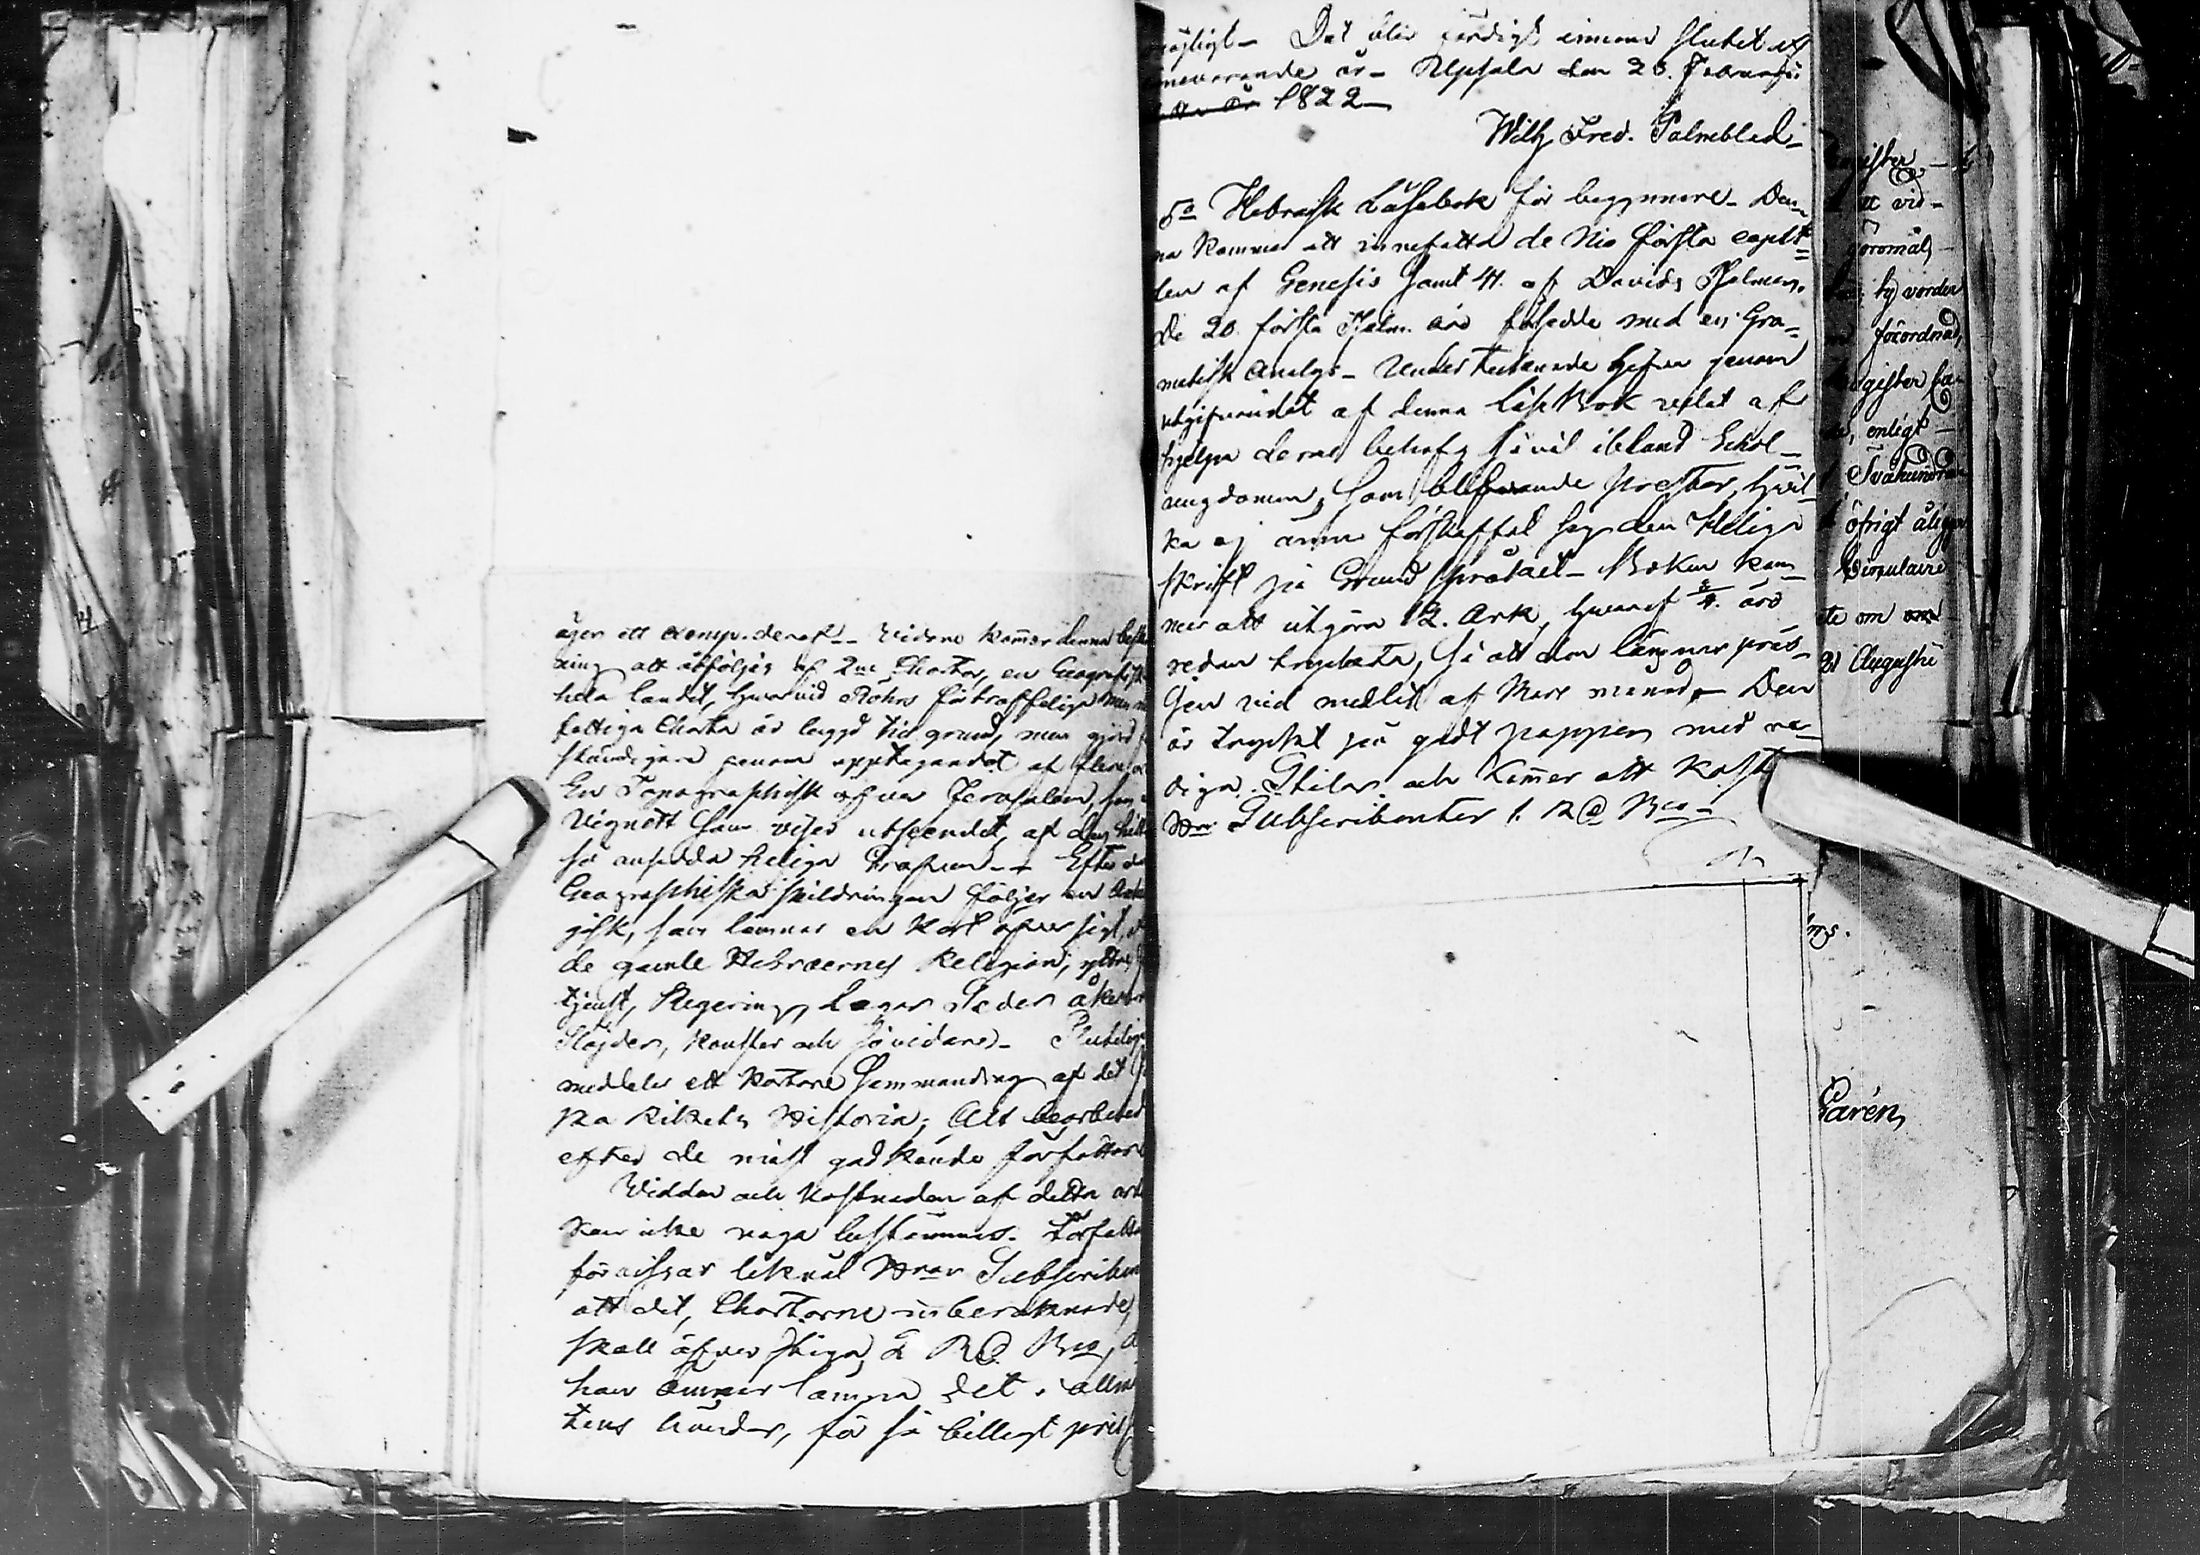 äger ett exempl. deraf_ Vidare kommer denna
ning att åtföljas af 2ne Chartor, en Geografisk
hela landet, hvarvid Röhrs förträffeliga men
fattiga Charta är lagd till grund, men gjord
ständigare genom upptagandet af flere
En Topographisk öfver Jerusalem,
Vignett som viser utseendet af den
så ansedda heliga Grafven_ Efter
Geographiska skildringen följer en
gisk, som lämnar en kort öfversigt,
de gamle Hebreernes Religion, yttre
tjenst, Regering, Lagar Seder åker
Slöjder, konster och så vidare_ Slutelig
meddeles ett kortare Sammandrag af det
ska Rikets Historia; Alt bearbetad
efter de mäst godkände författar
Vidden och kostnaden af detta
kan icke noga bestämmas. Författ
förvissar likväl Hrar Subscriben
att det, Chartorne inberäknade,
skall öfverstiga 2 R@ Bco,
han ämnar lämna det i allm
tens händer, för så billigt pris
möjligt_ Det blir färdigt innom slutet af
innevarande år_ Upsala den 20. Februarii
1822_
Wilh Fred. Palmblad_
5o Hebraisk Läsebok för begynnare_ Den_
na kommer att innefatta de Nio första capit=
len af Genesis samt 41. af Davids Psalmer.
De 20 första Psalm. äro försedde med en Gra_
matisk Analys_ Undertecknade hafva genom
utgifvandet af denna läsebok velat af
hjelpa deras behof, såväl ibland Skol_
ungdomen, som blifvande prester, hvil_
ka ej ännu förskaffat sig den Heliga
skrift på Grund språket_ Boken kom_
mer att utgöra 12. Ark, hvaraf äro
redan tryckta, så att den lämnar präs_
sen vid medlet af Mars månad_ Den
är tryckt på godt papper med re_
diga Stilar och kommer att kosta
Hrr Subscribenter 1. R@ Bco_
Register
att vid_
göromål
ty vorden
förordnad,
Magister
enligt
Tvåhundra
öfrigt ålig
Cirkulaire
te om
21 Augusti
ms.
Garén,